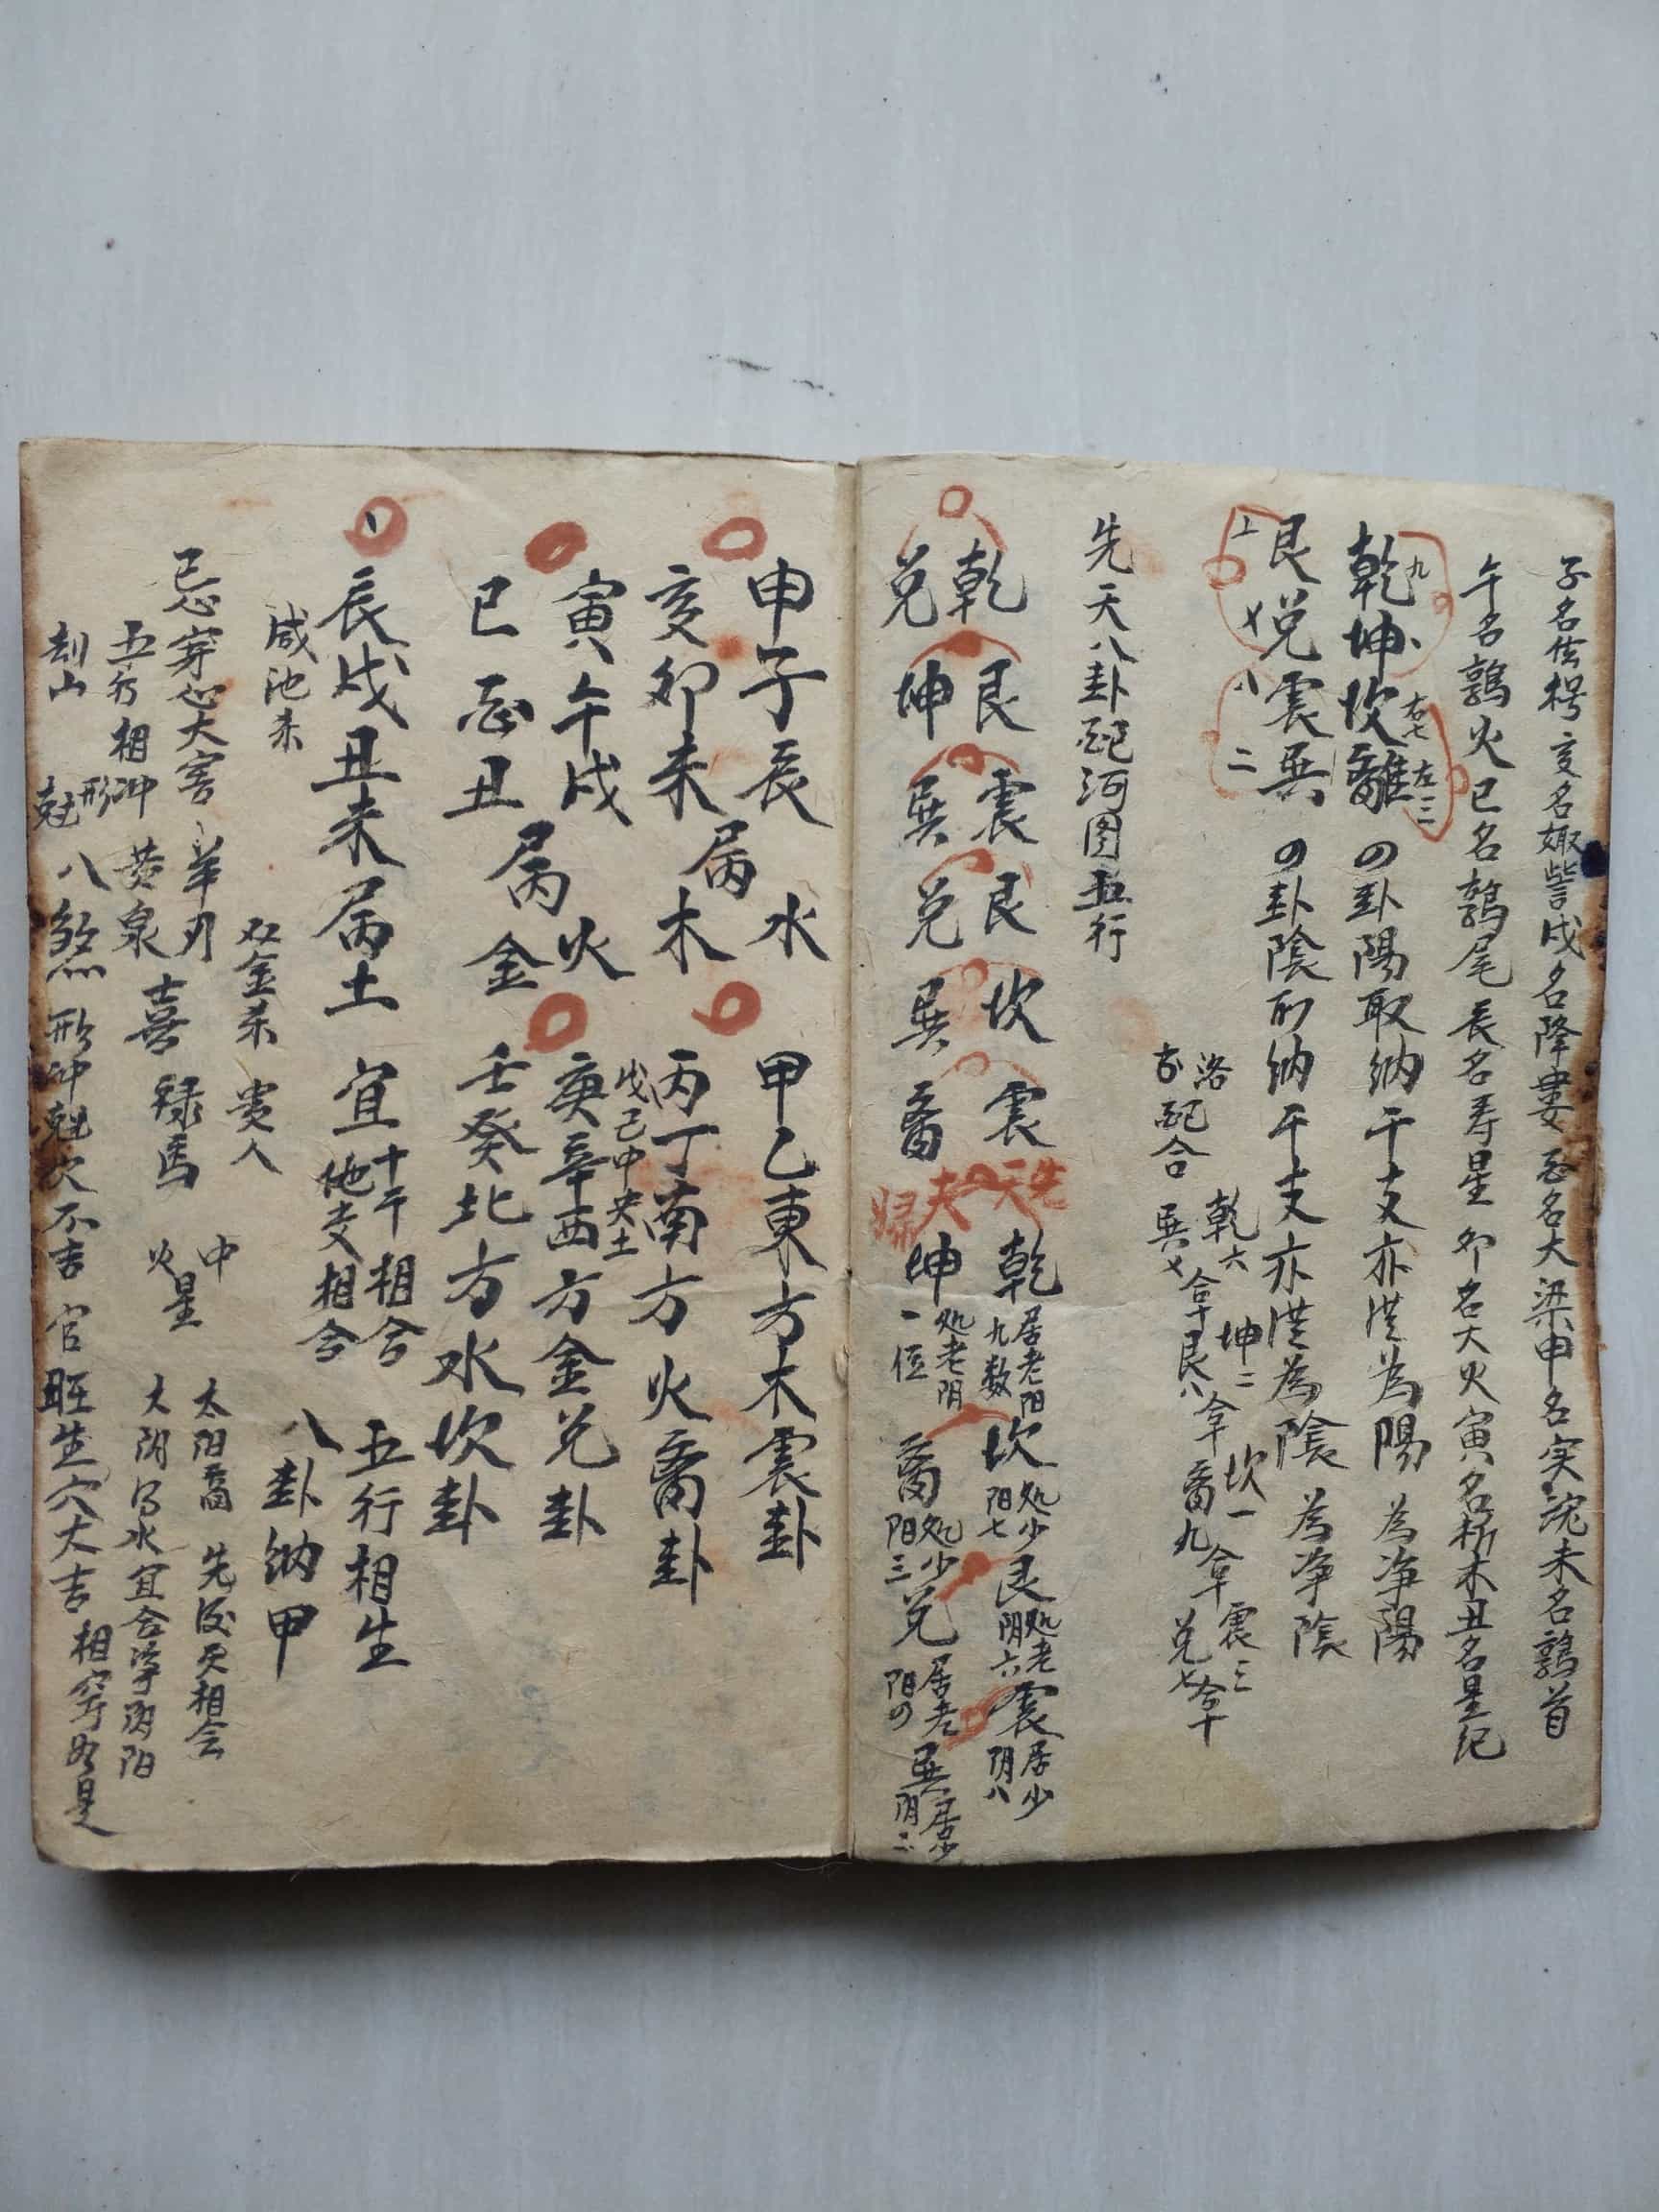 子名玄枵 亥名娵訾 戌名降婁 酉名大梁 申名实沈 未名鶉首
午名鶉火 巳名鶉尾 辰名寿星 卯名大火 寅名析木 丑名星纪
九 右七 左三
乾坤坎離 の卦陽取纳干支亦洪為陽 為净陽
艮兑震巽 の卦陰所纳干支亦洪為陰 為净陰
八 二
洛
配合 乾六 坤二 坎一 震三
巽 合十 艮八 合十 离九 合十 兑七 合十
先天八卦配河图五行
乾 艮 震 艮 坎 震
兑 坤 巽 兑 巽 离
先天 夫歸
乾 居老阳九数 坎 处少阳七 艮 处老阴六 震 居少阴八
坤 处老阴一位 离 处少阳三 兑 居老阳の 巽 居少阴二
申子辰 水 甲乙東方木震卦
亥卯未 属木 丙丁南方火离卦
戊己中央土
寅午戌 火 庚辛西方金兑卦
巳酉丑 属金 壬癸北方水坎卦
辰戌丑未属土 宜 十干相合 五行相生
地支相合 八卦纳甲
咸池杀 双金杀 贵人 中
忌穿心大害 羊刃 喜 禄馬 火星 太阳 先后天相会
五行相冲 黄泉 大阴 水宜合净阴阳
刦山 形 尅 八煞 形冲尅 不吉 官旺生穴大吉 相穿 是